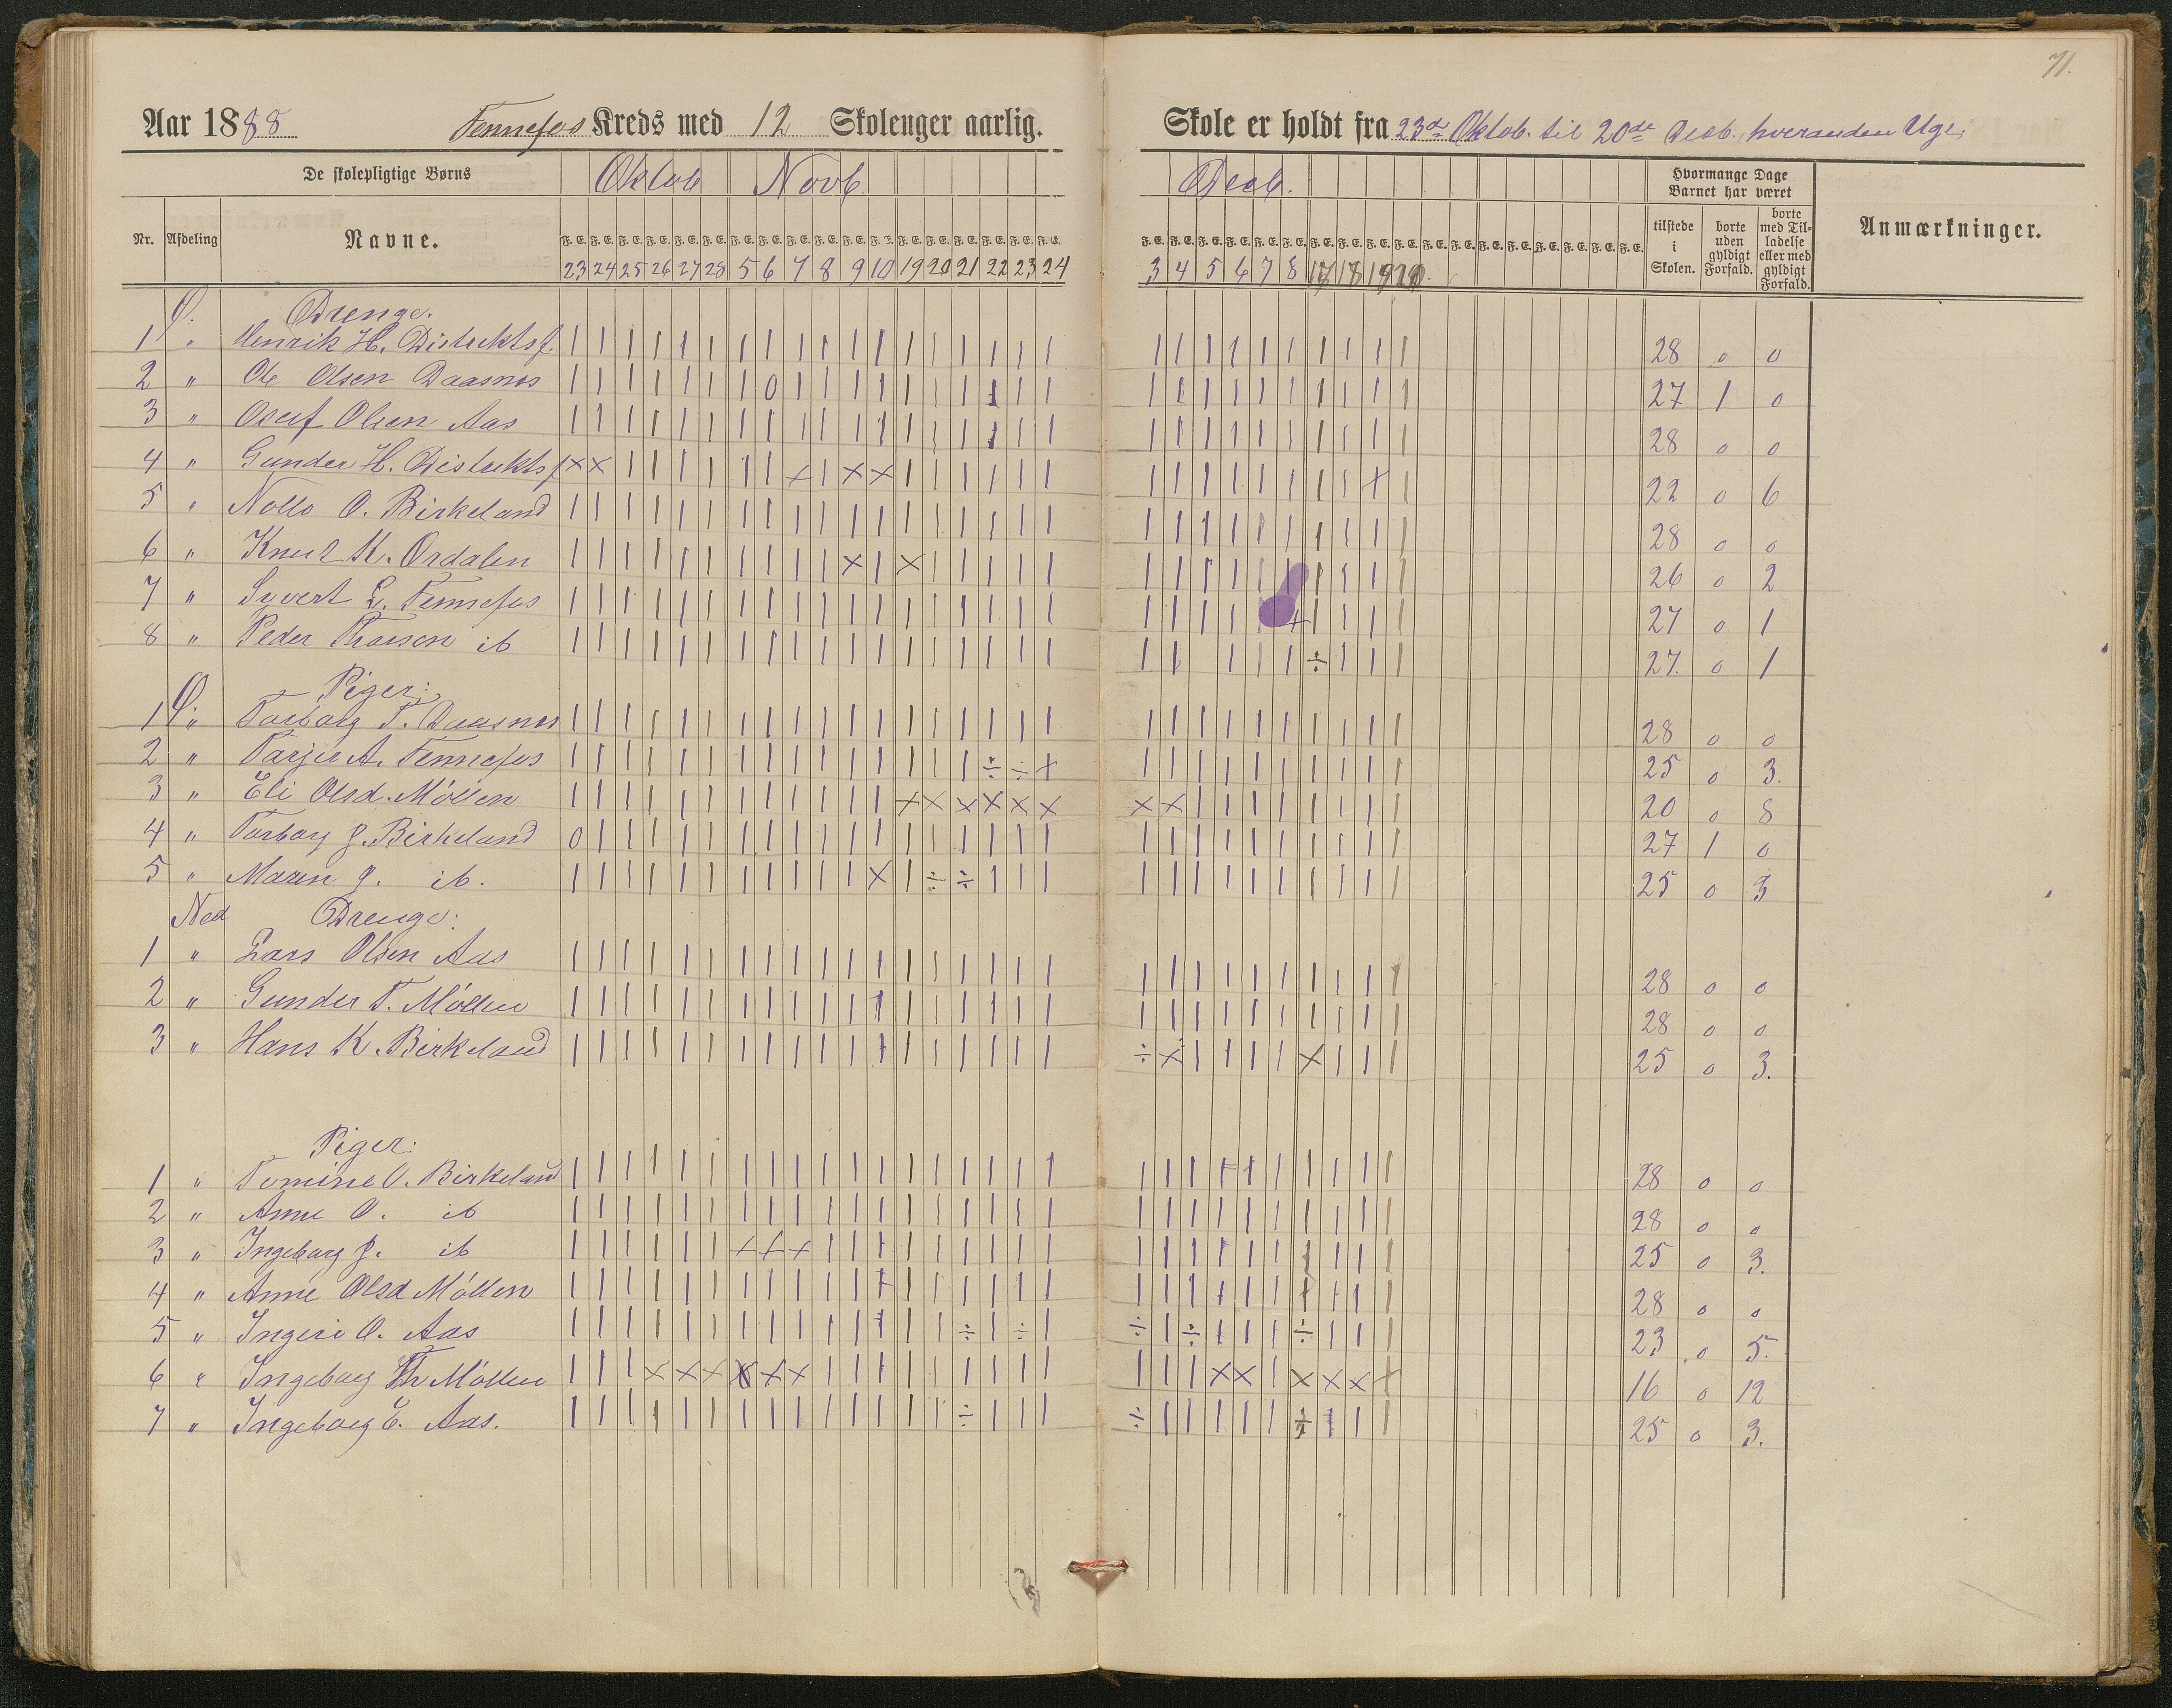 71.
Aar 1888 Fennefos Kreds med 12 Skoleuger aarlig.
Skole er holdt fra 23de Oktob. til 20de Decb. hveranden Uge.
De skolepligtige Børns Oktob Novb Decb. Hvormange Dage Barnet har været
Nr. Afdeling Navne. F. E. F. E. F. E. F. E. F. E. F. E. F. E. F. E. F. E. F. E. F. E. F. E. F. E. F. E. F. E. F. E. F. E. F. E.
tilstede i Skolen. borte uden gyldigt Forfald. borte med Tilladelse eller med gyldigt Forfald. Anmærkninger.
23 24 25 26 27 28 5 6 7 8 9 10 19 20 21 22 23 24 3 4 5 6 7 8 17 18 19 20.
Ø. Drenge.
1 " Henrik H. Distriktsf. 28 0 0
2 " Ole Olsen Daasnes 27 1 0
3 " Oluf Olsen Aas 28 0 0
4 " Gunder H. Distriktsf 22 0 6
5 " O. Birkeland 28 0 0
6 " Knut K. Ordalen 26 0 2
7 " Syvert L. Fennefos 27 0 1
8 " Peder ib 27. 0 1
Ø. Piger:
1 " Torborg T. Daasnes 28 0 0
2 " Tarjer A. Fennefos 25 0 3.
3 " Eli Olsd. Möllen 20 0 8
4 " Torborg J. Birkeland 27 1 0
5 " Maren J. ib. 25 0 3
Ned Drenge:
1 " Lars Olsen Aas 28 0 0
2 " Gunder T. Möllen 28 0 0
3 " Hans K. Birkeland 25 0 3.
Piger:
1 " Tomine O. Birkeland 28 0 0
2 " Anne O. ib 28 0 0
3 " Ingeborg J. ib 25 0 3.
4 " Anne Olsd Möllen 28 0 0
5 " Ingeri O. Aas 23 0 5.
6 " Ingeborg Th Möllen 16 0 12
7 " Ingeborg E. Aas. 25 0 3.